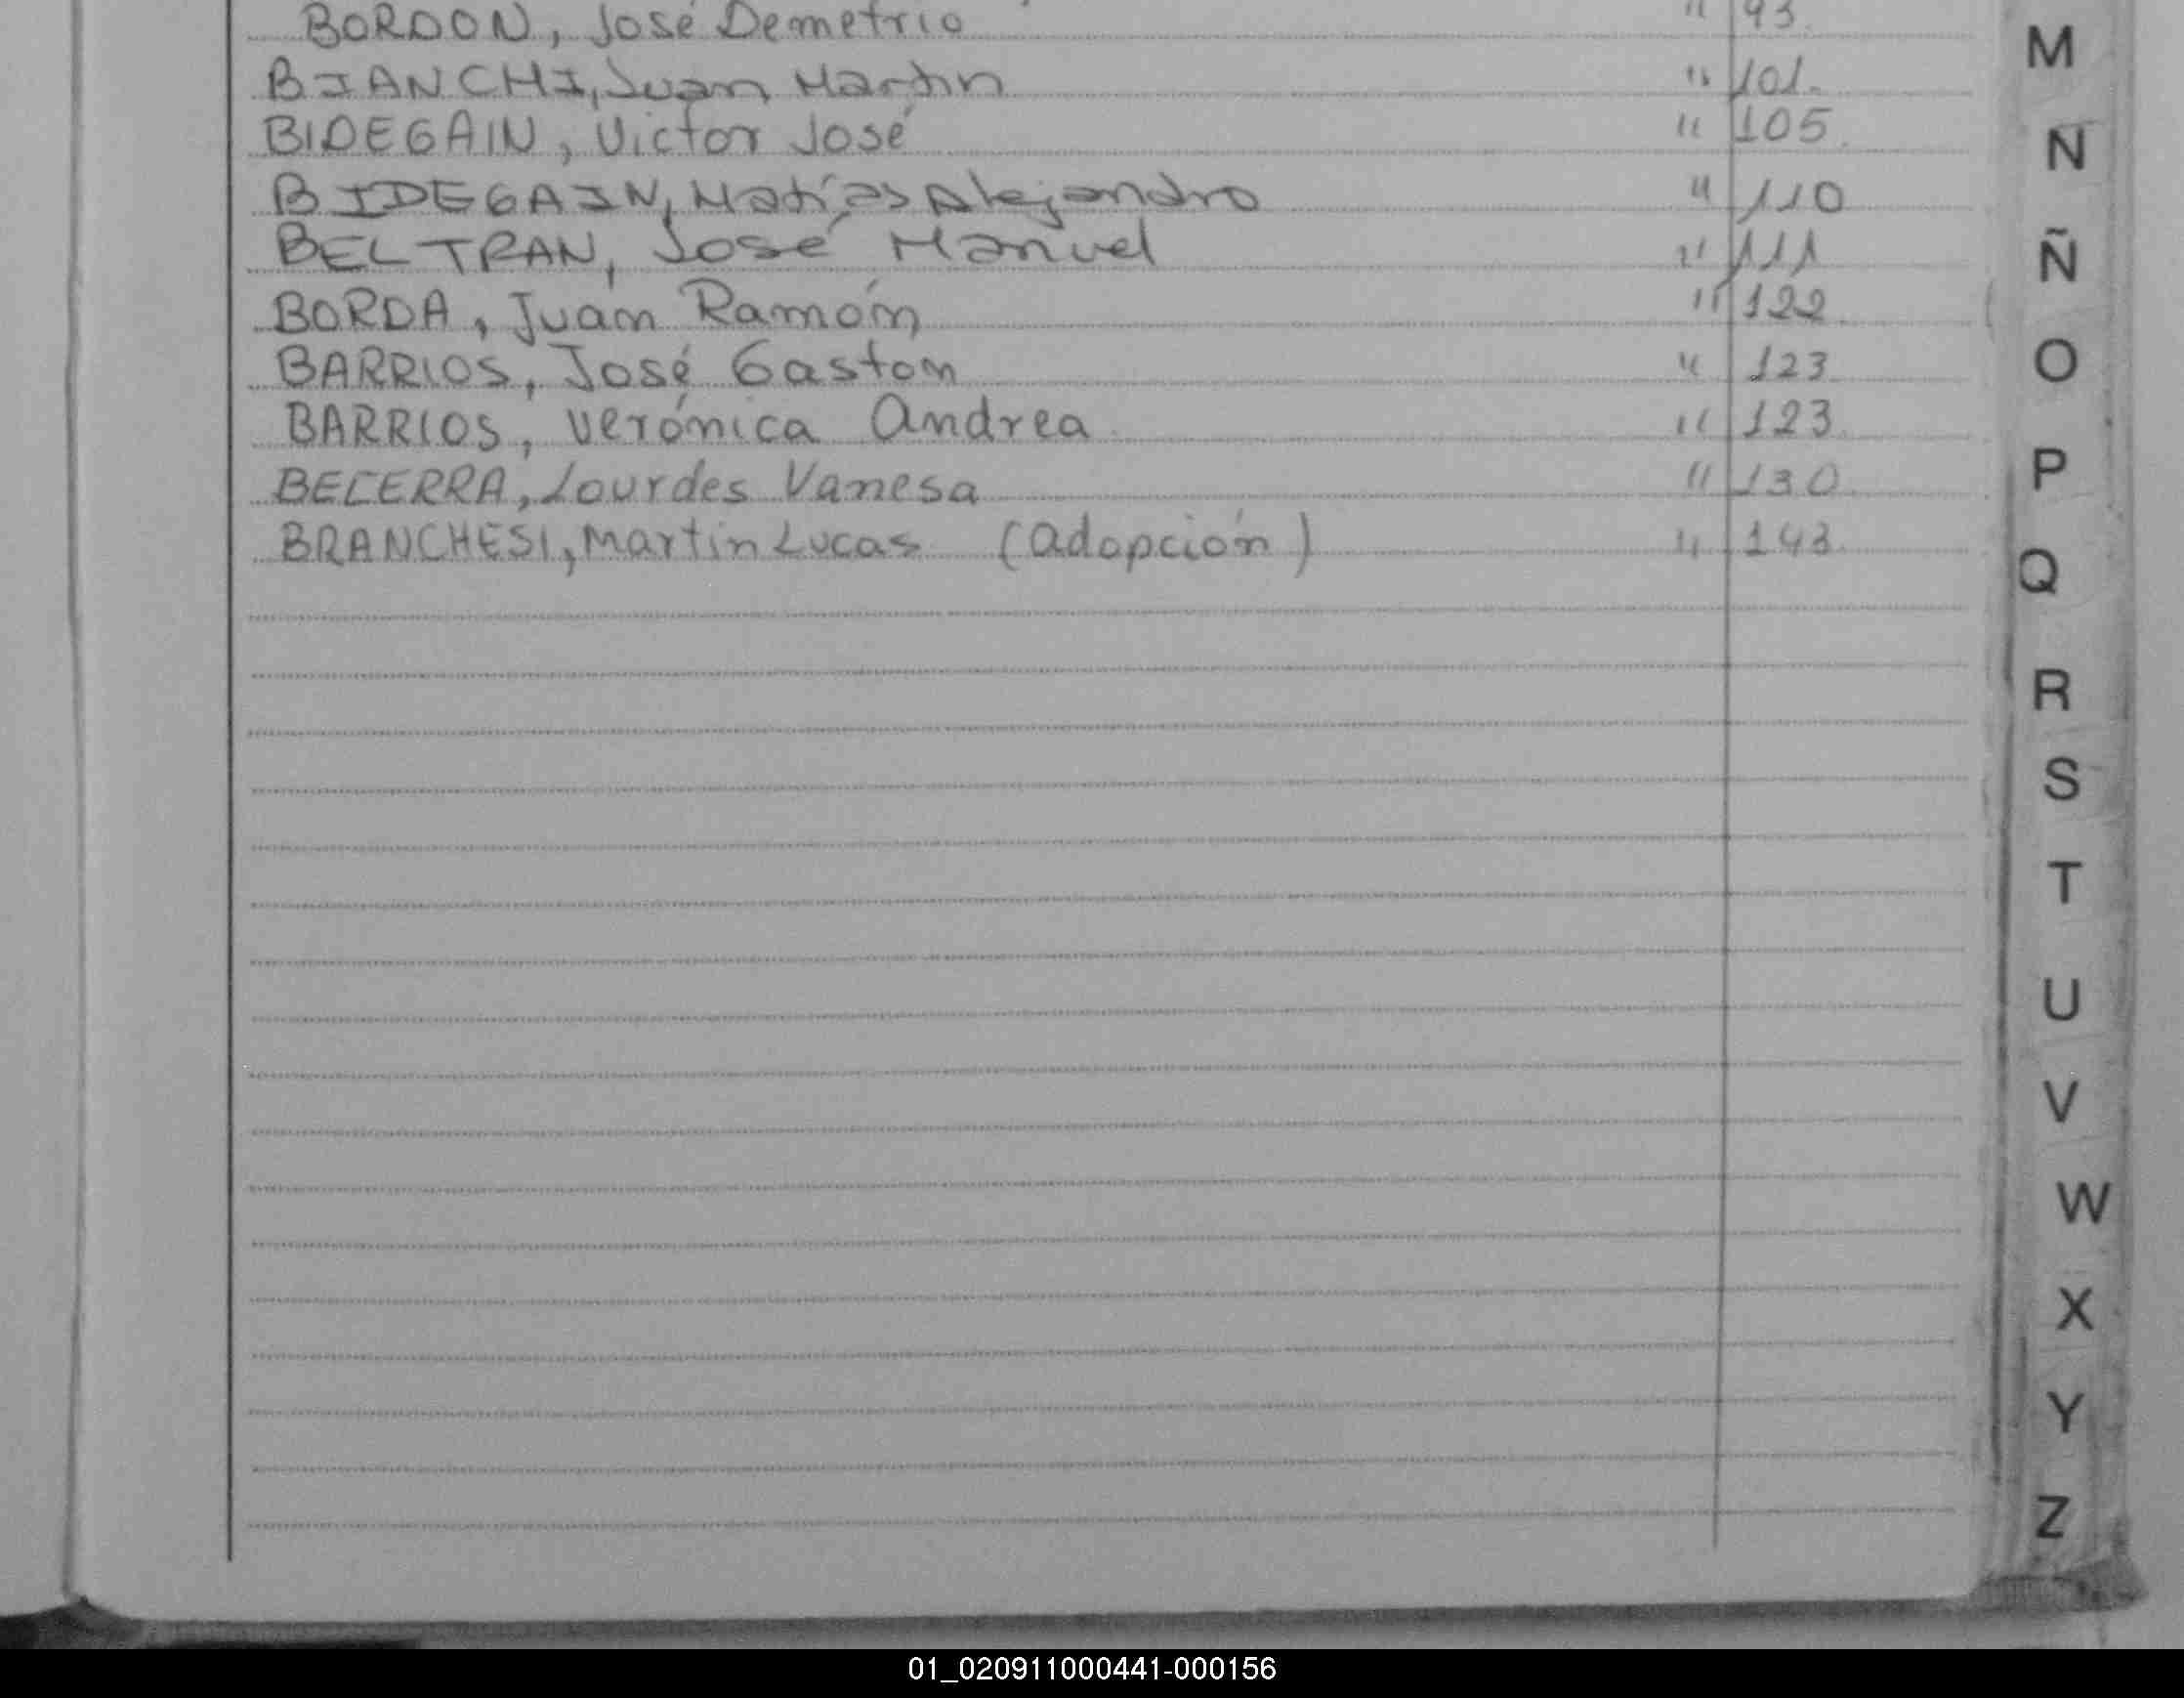 BORDON, José Demetrio " 93.
BIANCHI, Juan Martin " 101.
BIDEGAIN, Victor José " 105.
BIDEGAIN, Matías Alejandro " 110
BELTRAN, José Manuel " 111
BORDA, Juan Ramón " 122
BARRIOS, José Gaston " 123
BARRIOS, Verónica Andrea " 123
BECERRA, Lourdes Vanesa " 130
BRANCHESI, Martin Lucas (adopción) " 143
M
N
Ñ
O
P
Q
R
S
T
U
V
W
X
Y
Z
01_020911000441-000156